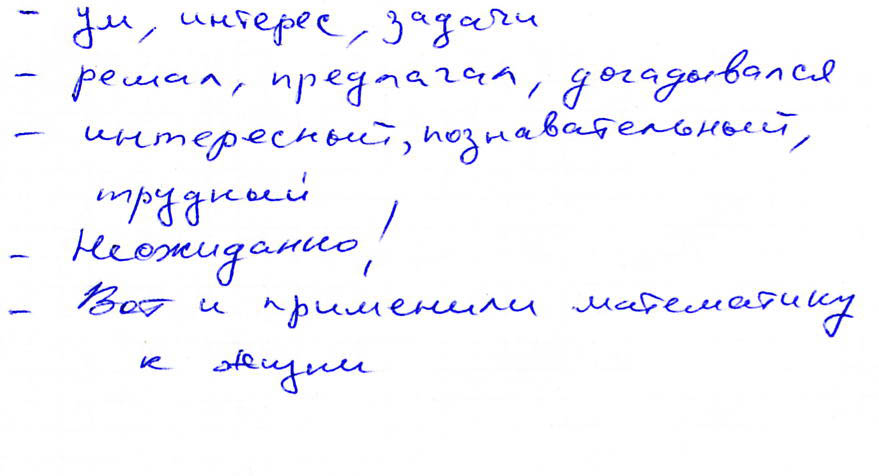 - ум, интерес, задачи
- решал, предлагал, догадывался
- интересный, познавательный,
трудный
- Неожиданно!
- Вот и применили математику
к жизни